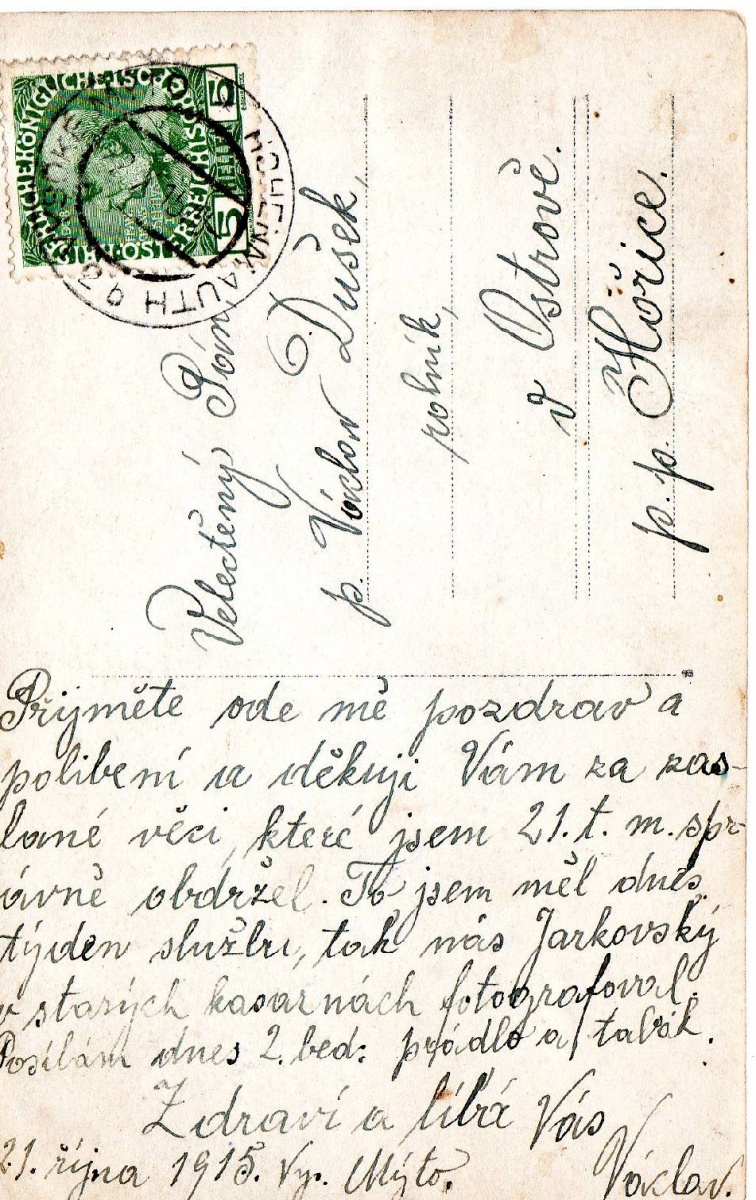 5 5
KAISERLICHE KÖNIGLICHE ÖSTERREICHISCHE POST
HOHENMAUTH
Velectěný Pán
p. Václav Dušek,
rolník,
v Ostrově.
p. p. Hořice.
Přijměte ode mě pozdrav a
polibení a děkuji Vám za zas-
lané věci, které jsem 21. t. m. spr-
ávně obdržel. To jsem měl dnes
týden službu, tak nás Jarkovský
v starých kasarnách fotografoval.
Posílám dnes 2. bed: prádlo a tabák.
Zdraví a líbá Vás
21. října 1915. Vys. Mýto. Václav.